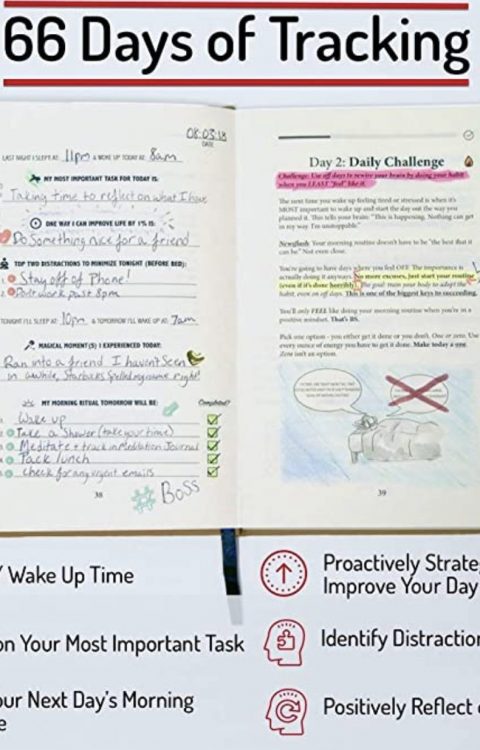 66 Days of Tracking
08.03.18
DATE
LAST NIGHT I SLEPT AT: 11pm & WOKE UP TODAY AT: 8am
MY MOST IMPORTANT TASK FOR TODAY IS:
Taking time to reflect on what I have
ONE WAY I CAN IMPROVE LIFE BY 1% IS:
Do Something nice for a friend
TOP TWO DISTRACTIONS TO MINIMIZE TONIGHT (BEFORE BED):
Stay off of Phone!
Dont work past 8pm
TONIGHT I'LL SLEEP AT: 10pm & TOMORROW I'LL WAKE UP AT: 7am
MAGICAL MOMENT(S) I EXPERIENCED TODAY:
Ran into a friend I haven't seen
in awhile, Starbucks Spelled my name right!
MY MORNING RITUAL TOMORROW WILL BE: Completed?
Wake up
Take a Shower (take your time)
Meditate + track in Meditation Journal
Pack lunch
check for any urgent emails
38
#Boss
Day 2: Daily Challenge
Challenge: Use off days to rewire your brain by doing your habit
when you LEAST "feel" like it.
The next time you wake up feeling tired or stressed is when it's
MOST important to wake up and start the day out the way you
planned it. This tells your brain: "This is happening. Nothing can get
in my way. I'm unstoppable."
Newsflash: Your morning routine doesn't have to be "the best that it
can be." Not even close.
You're going to have days where you feel OFF. The importance is
actually doing it anyways. No more excuses, just start your routine
(even if it's done horribly). The goal: train your body to adapt the
habit, even on off days. This is one of the biggest keys to succeeding.
You'll only FEEL like doing your morning routine when you're in a
positive mindset. That's BS.
Pick one option - you either get it done or you don't. One or zero. Use
every ounce of energy you have to get it done. Make today a one.
Zero isn't an option.
39
Wake Up Time
on Your Most Important Task
our Next Day's Morning
Proactively Strate
Improve Your Day
Identify Distraction
Positively Reflect